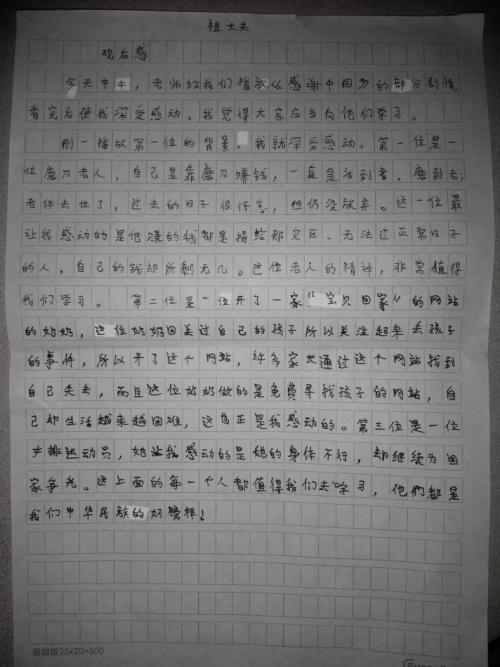 祖大夫
观后感
今天中午，老师给我们播放《感谢中国》的部分剧情，
看完后使我深受感动。我觉得大家应当向他们学习。
刚一播放第一位的背景，我就深受感动。第一位是一
位磨刀老人，自己是靠磨刀赚钱，一直是活到老，磨到老，
老伴去世了，过去的日子很怀念，但仍没放弃。这一位最
让我感动的是他赚的钱都是捐给那灾区、无法过正常日子
的人，自己的钱却所剩无几。这位老人的精神，非常值得
我们学习。 第二位是一位开了一家“宝贝回家”的网站
的奶奶，这位奶奶因丢过自己的孩子所以关注起来丢孩子
的事件，所以开了这个网站，许多家长通过这个网站找到
自己，而且这位奶奶做的是免费寻找孩子的网站，自
己却生活越来越困难，这也正是我感动的。第三位是一位
排运动员，她让我感动的是她的身体不行，却继续为国
家争光。这上面的每一个人都值得我们去学习，他们都是
我们中华民族的好榜样！
25x20=500